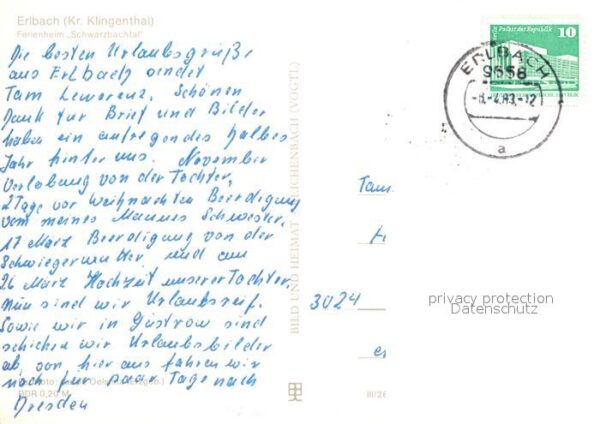 Erlbach (Kr. Klingenthal)
Ferienheim „Schwarzbachtal"
Die besten Urlaubsgrüße
aus Erlbach sendet
Fam. Lewerenz. Schönen
Dank für Brief und Bilder
haben ein aufregendes halbes
Jahr hinter uns. November
Verlobung von der Tochter,
2 Tage vor Weihnachten Beerdigung
von meines Mannes Schwester,
17 März Beerdigung von der
Schwiegermutter und am
26 März Hochzeit unserer Tochter.
Nun sind wir Urlaubsreif.
Sowie wir in Güstrow sind
schicken wir Urlaubsbilder
ab, von hier aus fahren wir
noch für paar Tage nach
Dresden
DDR 0,20 M
BILD UND HEIMAT REICHENBACH (VOGTL)
III/26
Palast der Republik
10
ERLBACH
9658
-6.-4.83.-12
a
Fam.
3024
privacy protection
Datenschutz